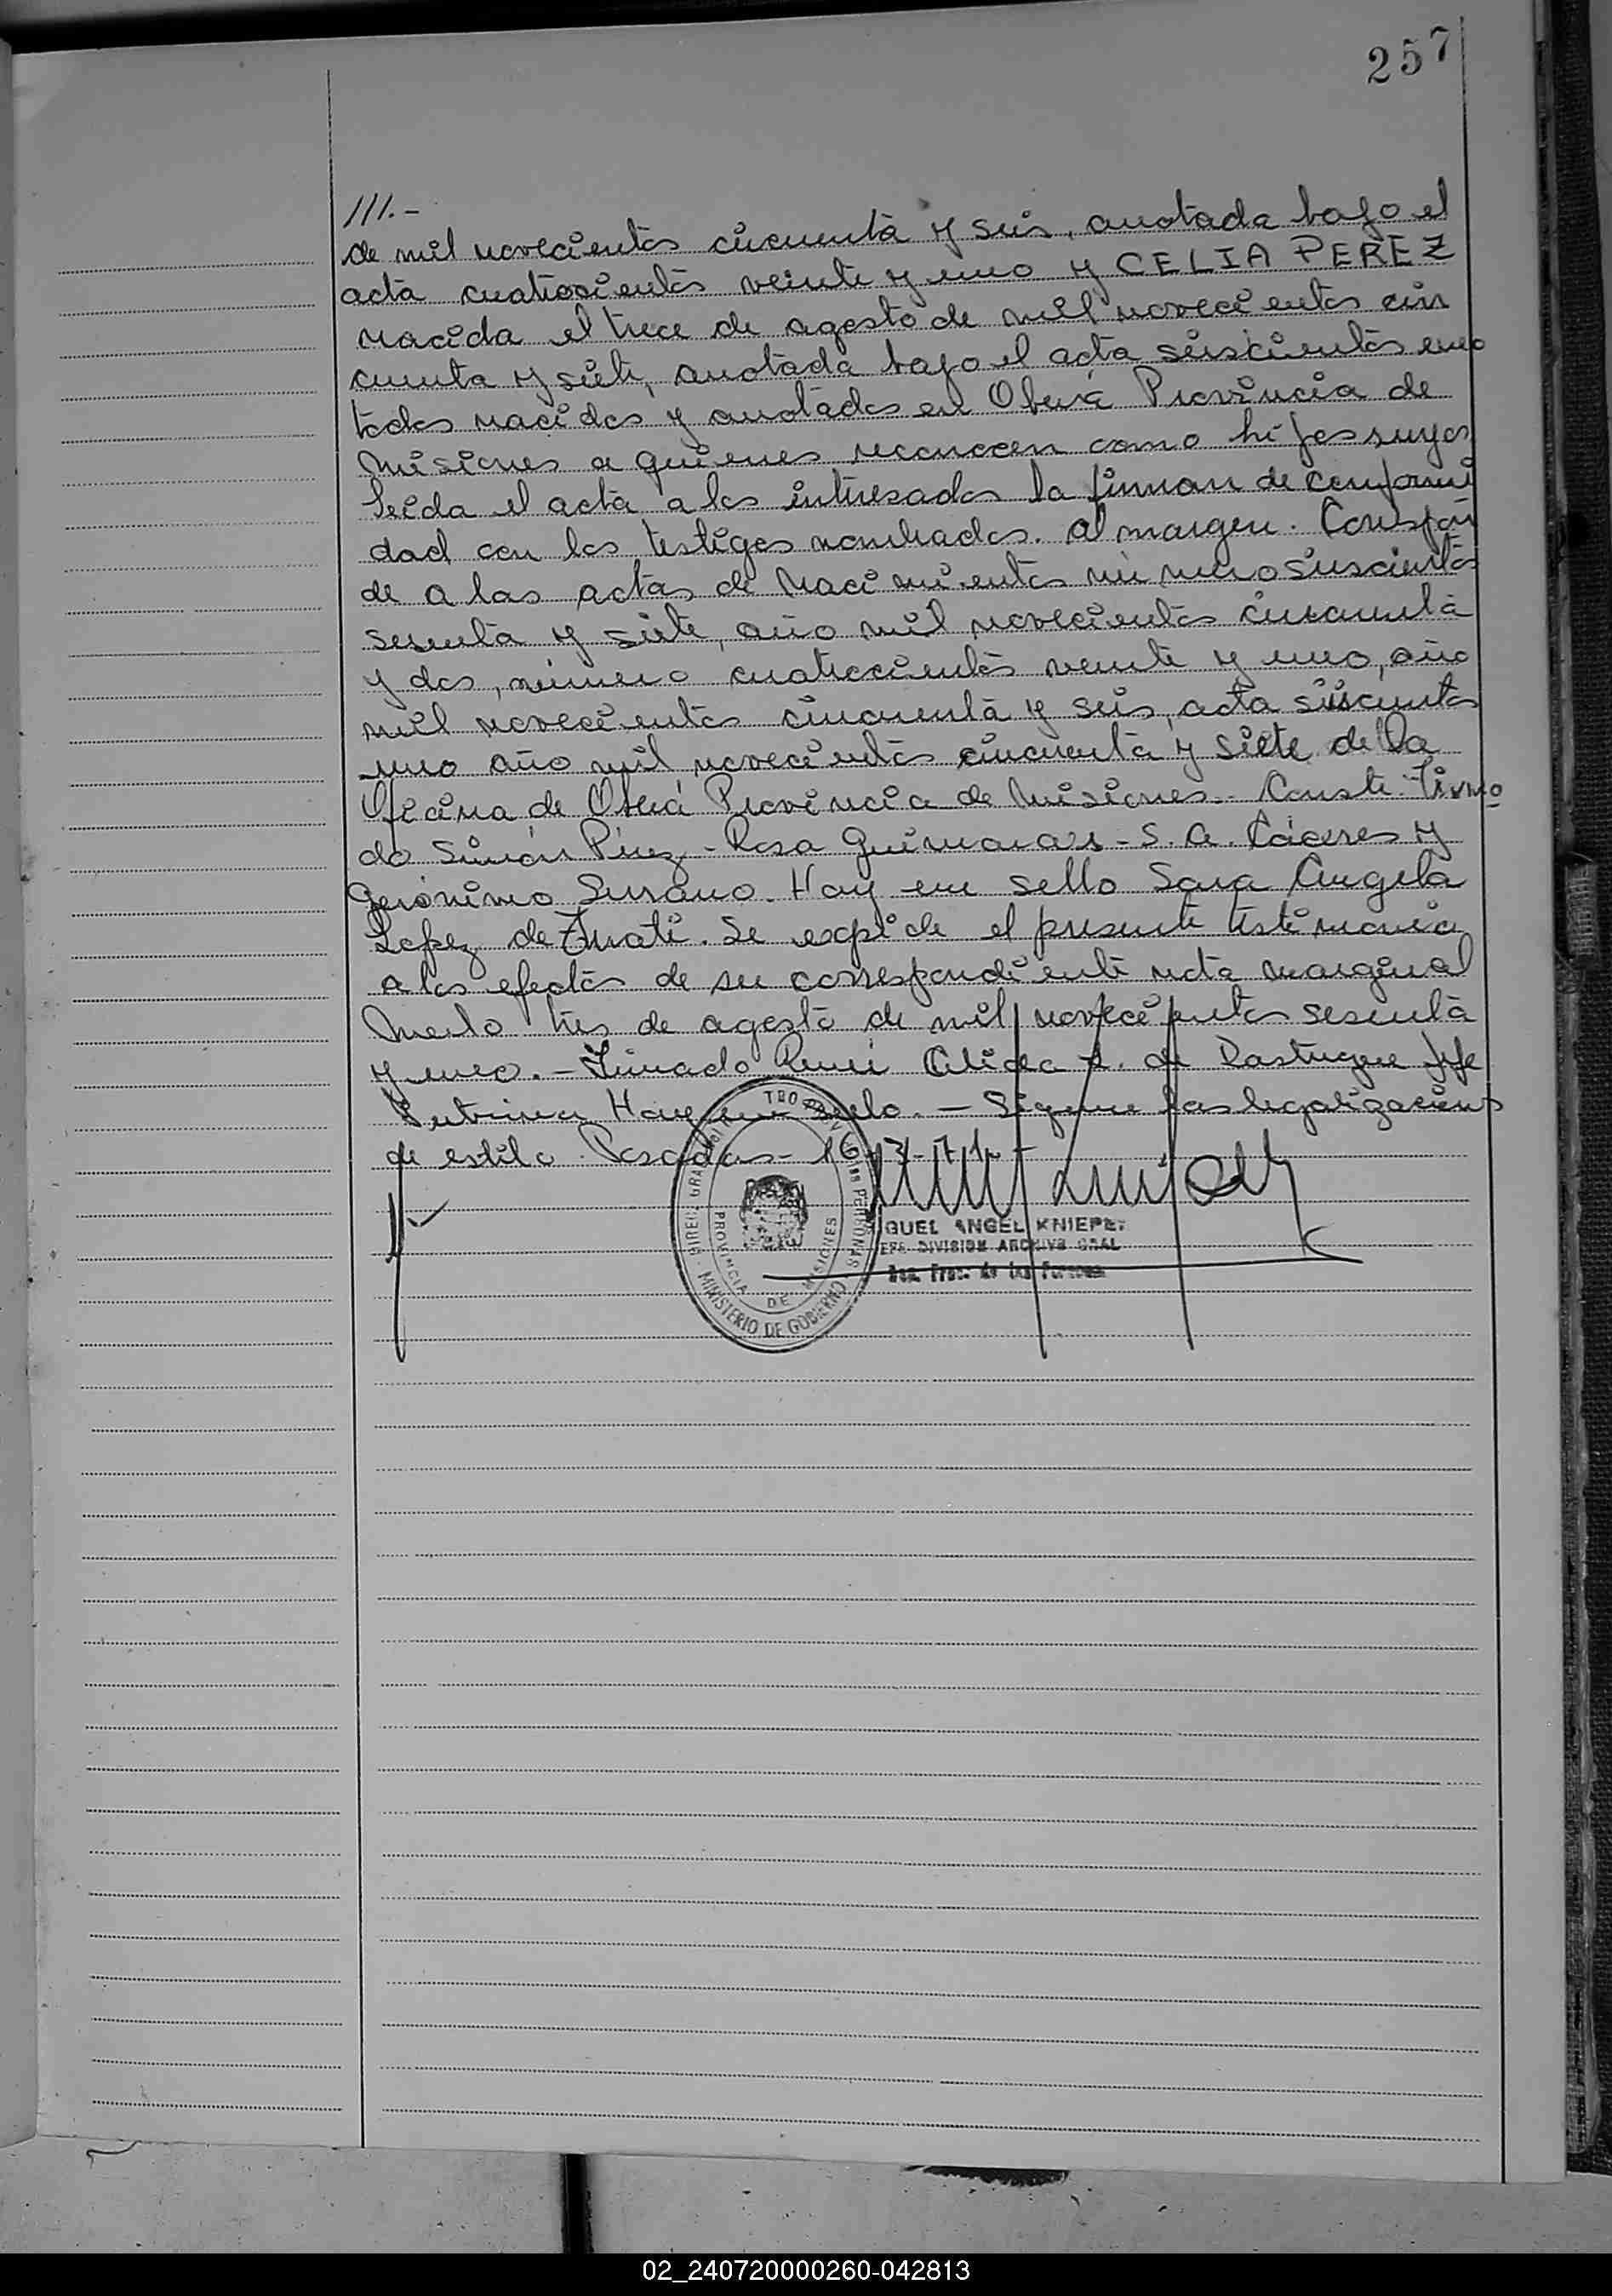 257
///.-
de mil novecientos cincuenta y seis, anotada bajo el
acta cuatrocientos veinte y uno y CELIA PEREZ
nacida el trece de agosto de mil novecientos cin
cuenta y siete, anotada bajo el acta seiscientos uno
todos nacidos y anotados en Oberá Provincia de
Misiones a quienes reconocen como hijos suyos
leida el acta a los interesados la firman de conformi
dad con los testigos nombrados. Al margen. Correspon
de a las actas de nacimientos número seiscientos
sesenta y siete, año mil novecientos cincuenta
y dos, número cuatrocientos veinte y uno, año
mil novecientos cincuenta y seis, acta seiscientos
uno año mil novecientos cincuenta y siete de la
Oficina de Oberá Provincia de Misiones.- Conste. Firma
do Simón Pérez - Rosa Guimaraes - S. A. Cáceres y
Gerónimo Serrano. Hay un sello Sara Angela
Lopez de. Se expide el presente testimonio
a los efectos de su correspondiente nota marginal
Merlo tres de agosto de mil novecientos sesenta
y uno. - Firmado de Jefe
Interina Hay un sello. - Siguen las legalizaciones
de estilo. Posadas - 16-7-71. -
GUEL ANGEL KNIEPE
EFE DIVISION ARCHIVO GRAL
MINISTERIO DE GOBIERNO
PROVINCIA DE MISIONES
02_240720000260-042813